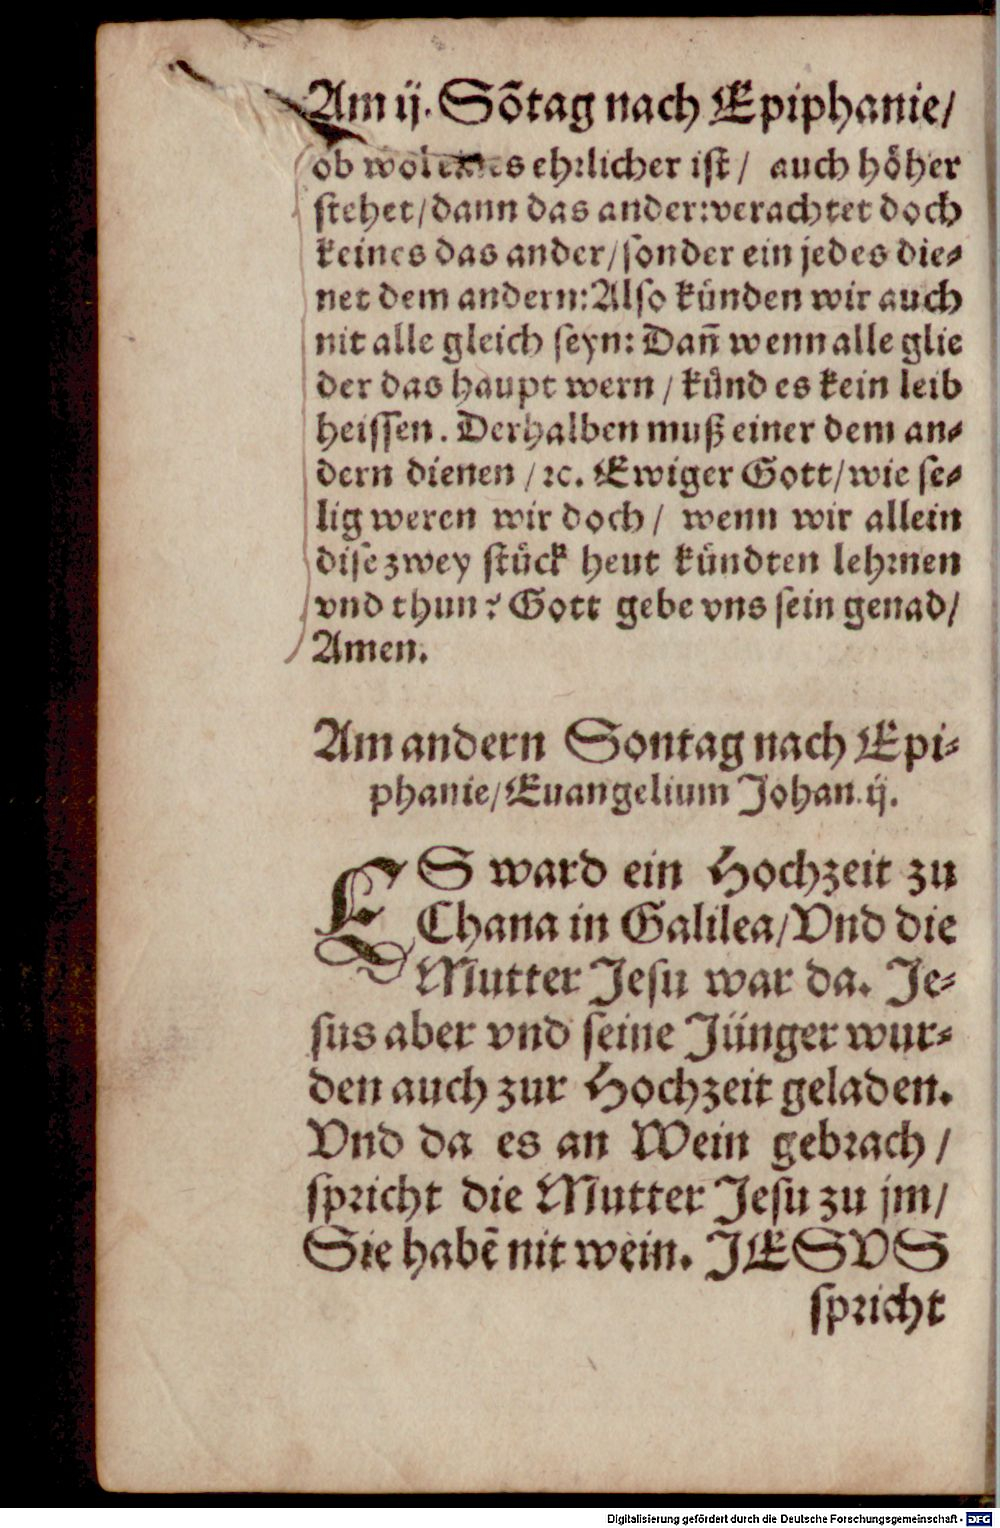 Am ij. Sõtag nach Epiphanie/
ob wol eines ehrlicher ist/ auch höher
stehet/dann das ander:verachtet doch
keines das ander/sonder ein jedes die⸗
net dem andern:Also künden wir auch
nit alle gleich seyn: Dañ wenn alle glie
der das haupt wern / künd es kein leib
heissen. Derhalben muß einer dem an⸗
dern dienen /ꝛc. Ewiger Gott/wie se⸗
lig weren wir doch/ wenn wir allein
dise zwey stück heut kündten lehrnen
vnd thun? Gott gebe vns sein genad/
Amen.
Am andern Sontag nach Epi⸗
phanie/Euangelium Johan. ij.
ES ward ein Hochzeit zu
Chana in Galilea/Vnd die
Mutter Jesu war da. Je⸗
sus aber vnd seine Jünger wur⸗
den auch zur Hochzeit geladen.
Vnd da es an Wein gebrach/
spricht die Mutter Jesu zu jm/
Sie habẽ nit wein. JESVS
spricht
Digitalisierung gefördert durch die Deutsche Forschungsgemeinschaft - DFG